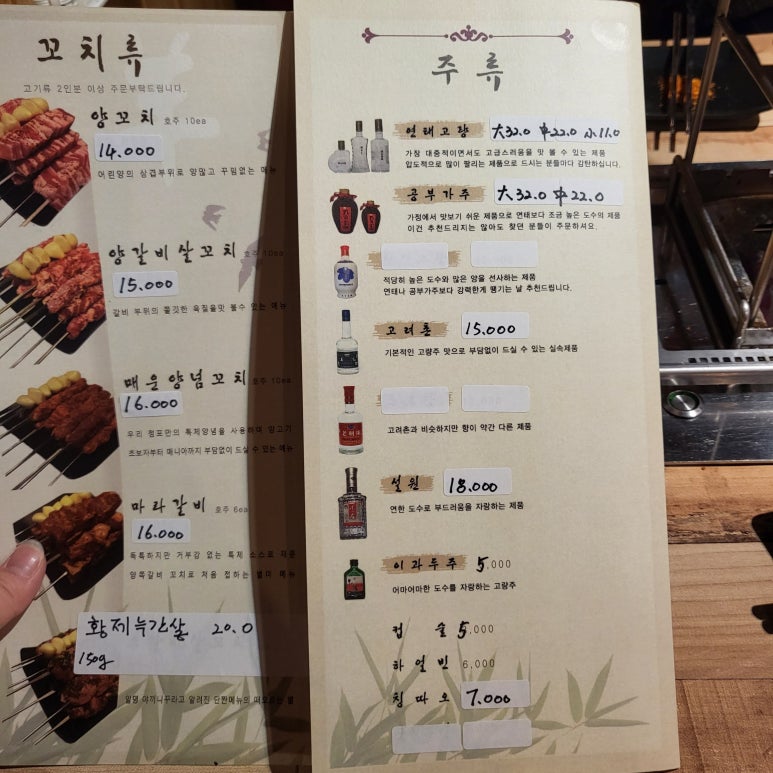 꼬치류
고기류 2인분 이상 주문부탁드립니다.
양꼬치 호주 10ea
14.000
어린양의 삼겹부위로 양많고 꾸밈없는 메뉴
양갈비살꼬치 호주 10ea
15.000
갈비 부위의 쫄깃한 육질을맛 볼수 있는 메뉴
매운양념꼬치 호주 10ea
16.000
우리 점포만의 특제양념을 사용하여 양고기
초보자부터 매니아까지 부담없이 드실 수 있는 메뉴
마라갈비 호주 6ea
16.000
독특하지만 거부감 없는 특제 소스로 재운
양쪽갈비 꼬치로 처음 접하는 별미 메뉴
황제늑간살 20.0
150g
일명 야끼니꾸라고 알려진 단짠메뉴의
주류
연태고량 大32.0 中22.0 小11.0
가장 대중적이면서도 고급스러움을 맛 볼 수 있는 제품
압도적으로 많이 팔리는 제품으로 드시는 분들마다 감탄하십니다.
공부가주 大32.0 中22.0
가정에서 맛보기 쉬운 제품으로 연태보다 조금 높은 도수의 제품
이건 추천드리지는 않아도 찾던 분들이 주문하셔요.
적당히 높은 도수와 많은 양을 선사하는 제품
연태나 공부가주보다 강력한게 땡기는 날 추천드립니다.
고려촌 15.000
기본적인 고량주 맛으로 부담없이 드실 수 있는 실속제품
고려촌과 비슷하지만 향이 약간 다른 제품
설원 18.000
연한 도수로 부드러움을 자랑하는 제품
이과두주 5.000
어마어마한 도수를 자랑하는 고량주
컵 술 5.000
하얼빈 6,000
칭따오 7.000